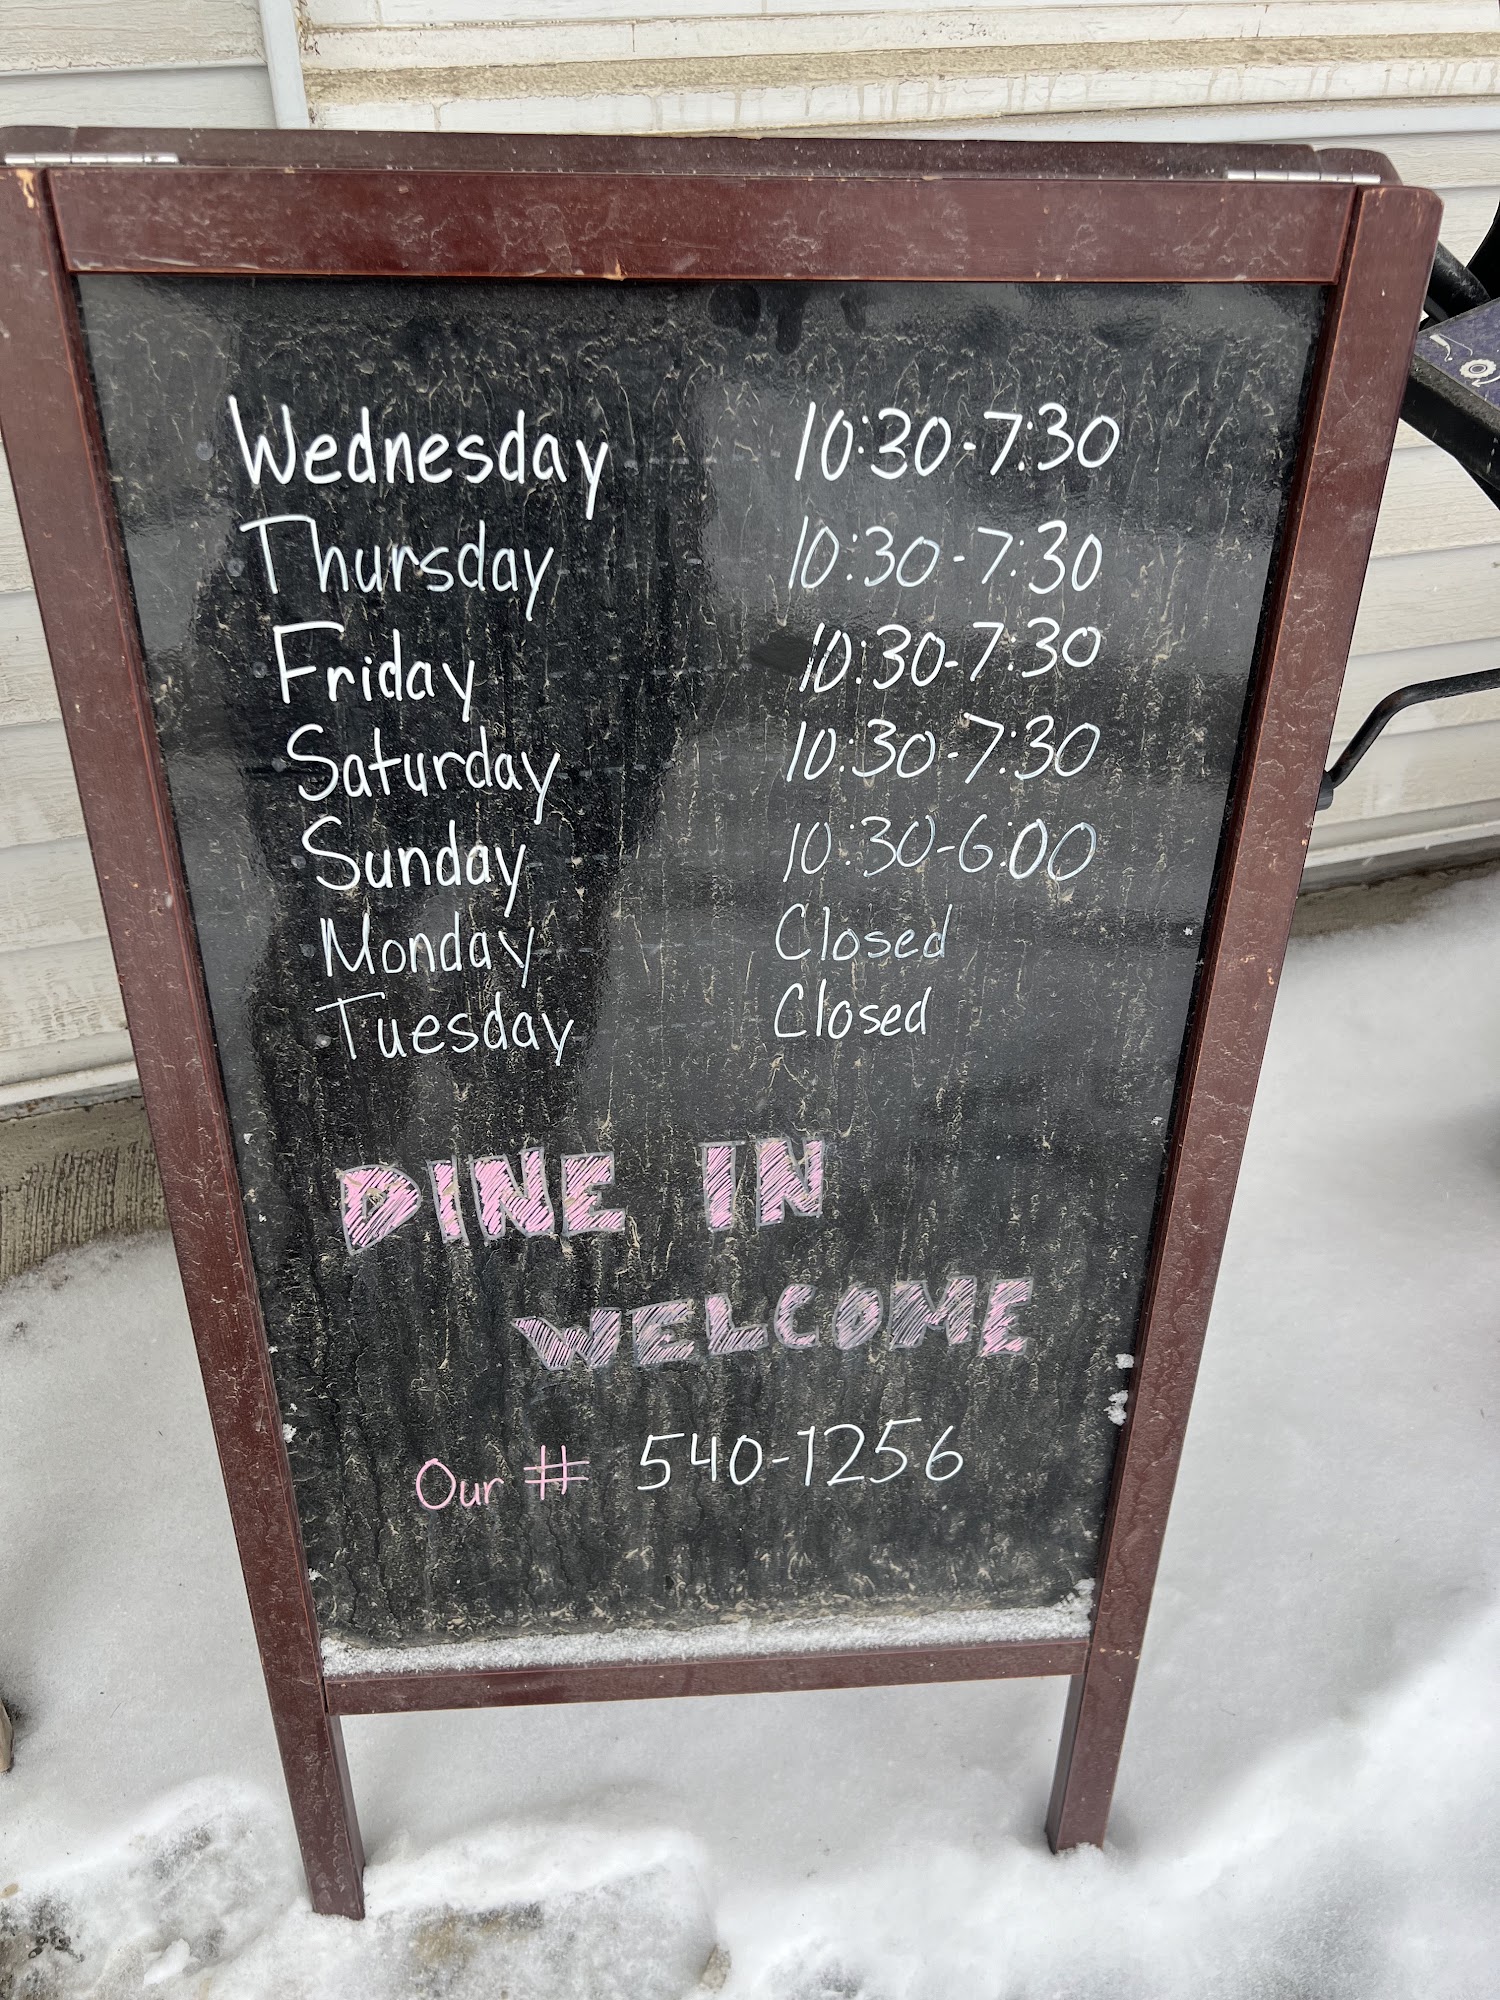 Wednesday 10:30-7:30
Thursday 10:30-7:30
Friday 10:30-7:30
Saturday 10:30-7:30
Sunday 10:30-6:00
Monday Closed
Tuesday Closed
DINE IN
WELCOME
Our # 540-1256